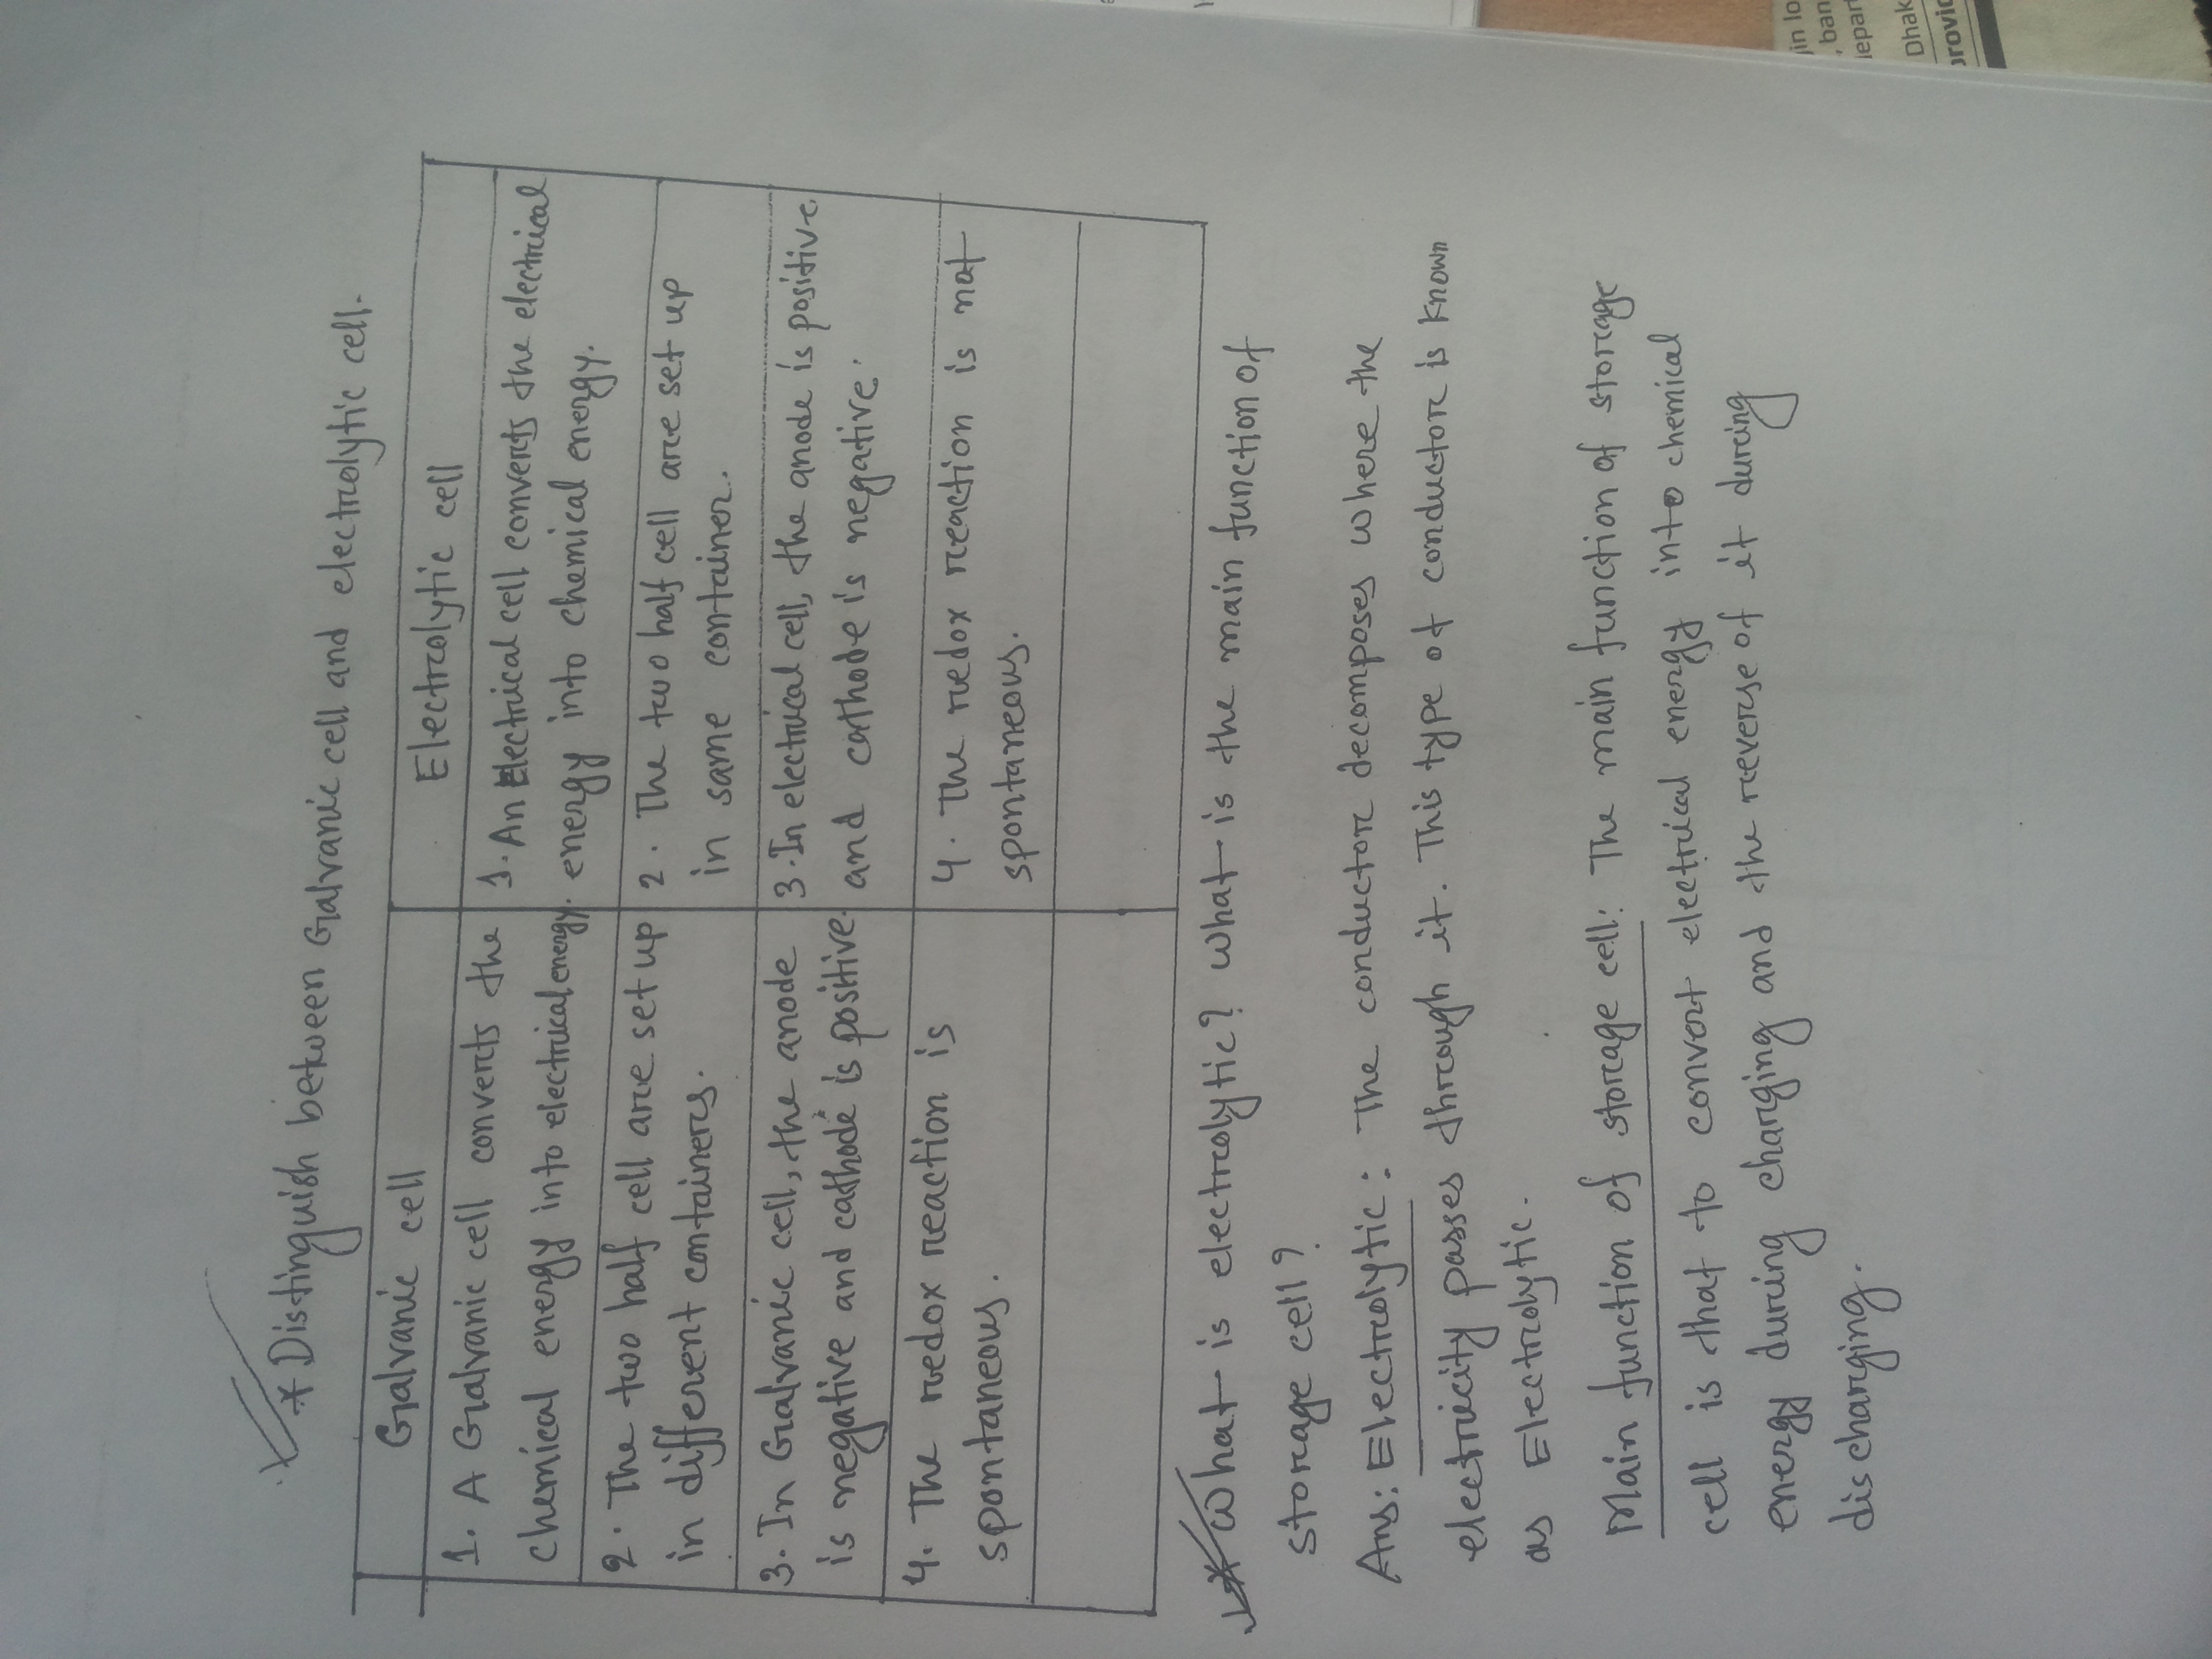 * Distinguish between Galvanic cell and electrolytic cell.
Galvanic cell
Electrolytic cell
1. A Galvanic cell converts the
chemical energy into electrical energy.
1. An Electrical cell converts the electrical
energy into chemical energy.
2. The two half cell are set up
in different containers.
2. The two half cell are set up
in same container.
3. In Galvanic cell, the anode
is negative and cathode is positive.
3. In electrical cell, the anode is positive
and cathode is negative.
4. The redox reaction is
spontaneous.
4. The redox reaction is not
spontaneous.
* What is electrolytic? What is the main function of
storage cell?
Ans: Electrolytic: The conductor decomposes where the
electricity passes through it. This type of conductor is known
as Electrolytic.
Main function of storage cell: The main function of storage
cell is that to convert electrical energy into chemical
energy during charging and the reverse of it during
discharging.
in lo
, ban
epar
Dhak
provic